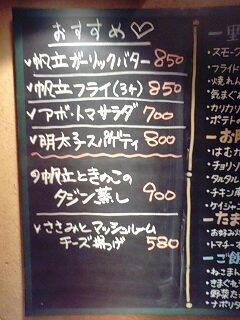 おすすめ♡
✓帆立ガーリックバター 850
✓帆立フライ(3ヶ) 850
✓アボ・トマサラダ 700
✓明太子スパゲティ 800
✓帆立ときのこの
タジン蒸し 900
✓ささみとマッシュルーム
チーズ揚げ 580
スモー
フライド
焼れん
気まぐれ
カリカリ
ポテトの
はむカ
チョリソ
タルタル
チキン南
ケイジャ
ーたま
お好み
トマチー
ーご飯
ねこまん
きまぐれ
野菜た
ナポリタ